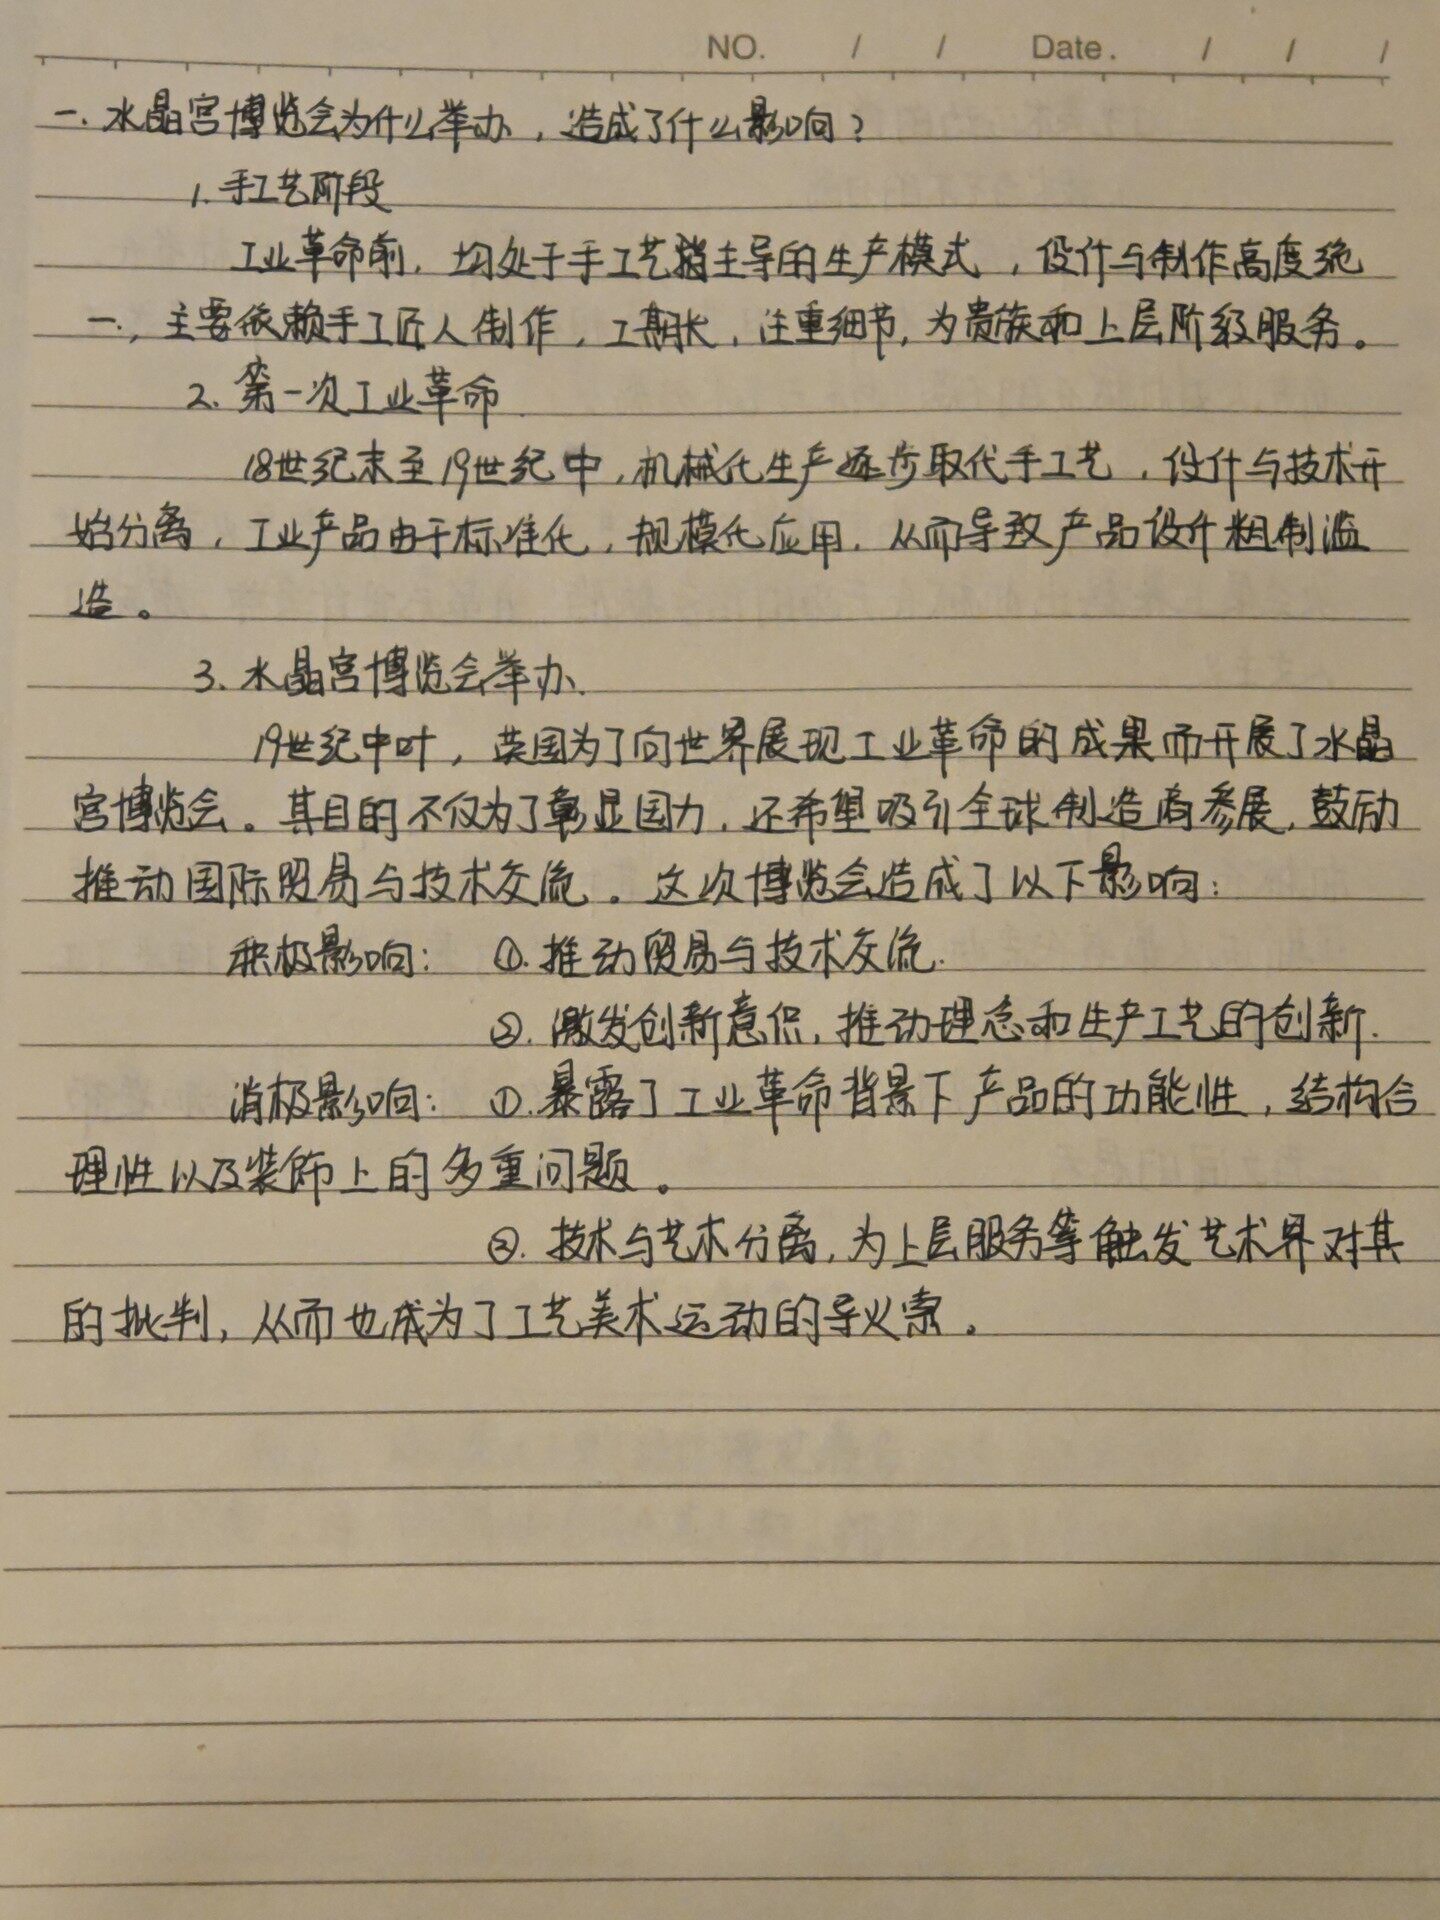 NO. / / Date. / / /
一. 水晶宫博览会为什么举办，造成了什么影响？
1. 手工艺阶段
工业革命前，均处于手工艺主导的生产模式，设计与制作高度统
一，主要依赖手工匠人制作，工期长，注重细节，为贵族和上层阶级服务。
2. 第一次工业革命
18世纪末至19世纪中，机械化生产逐步取代手工艺，设计与技术开
始分离，工业产品由于标准化，规模化应用，从而导致产品设计粗制滥
造。
3. 水晶宫博览会举办.
19世纪中叶，英国为了向世界展现工业革命的成果而开展了水晶
宫博览会。其目的不仅为了彰显国力，还希望吸引全球制造商参展，鼓励
推动国际贸易与技术交流。这次博览会造成了以下影响：
积极影响： ①. 推动贸易与技术交流.
②. 激发创新意识，推动理念和生产工艺的创新.
消极影响： ①. 暴露了工业革命背景下产品的功能性，结构合
理性以及装饰上的多重问题。
②. 技术与艺术分离，为上层服务等触发艺术界对其
的批判，从而也成为了工艺美术运动的导火索。